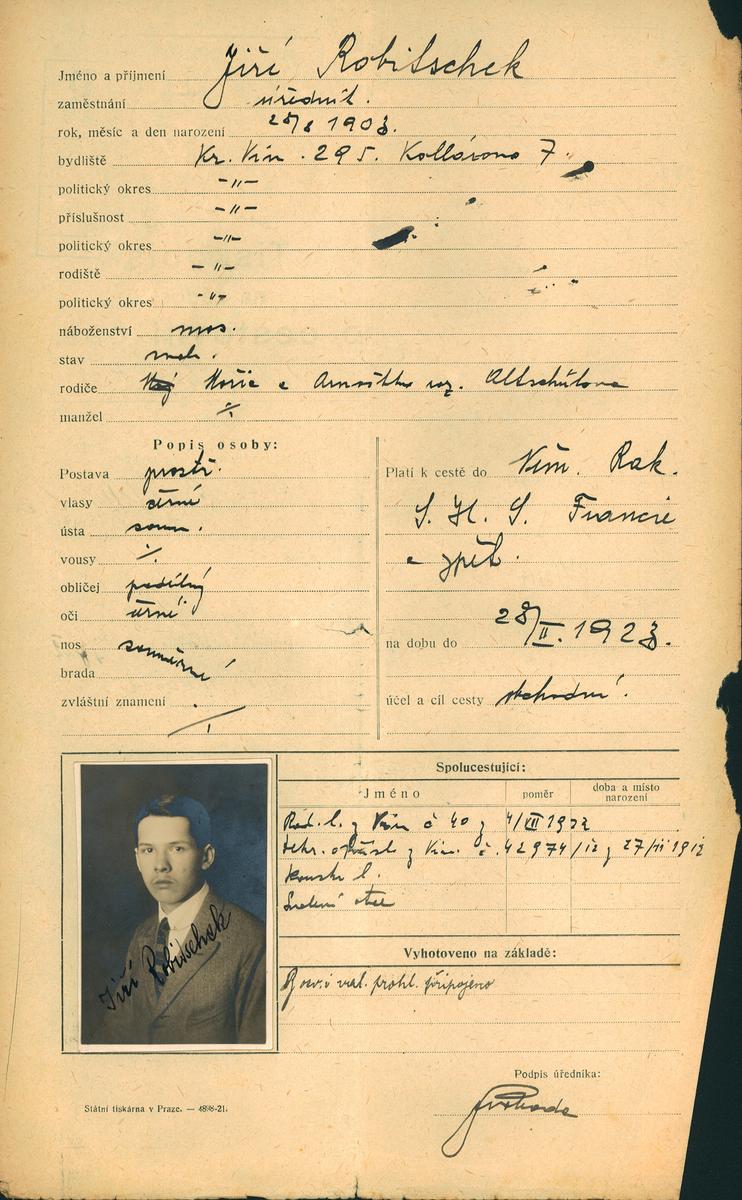 Jméno a příjmení Jiří Robitschek
zaměstnání úředník.
rok, měsíc a den narození 1903.
bydliště Kr. Vin. 295. Kollárova 7.
politický okres -"-
příslušnost -"-
politický okres -"-
rodiště -"-
politický okres -"-
náboženství mos.
stav
rodiče Moric a Arnoštka roz. Altschulova
manžel ⁒
Popis osoby:
Postava prostř.
vlasy černé
ústa soum.
vousy ⁒
obličej podélný
oči černé
nos souměrné
brada
zvláštní znamení
Platí k cestě do Něm. Rak.
S. H. S. Francie
a zpět.
na dobu do 28/II. 1923.
účel a cíl cesty obchodní.
Jiří Robitschek
Spolucestující:
Jméno poměr doba a místo narození
Rod. l. z Vin č 40 z 4/VII 1922
z Vin. č. 42974/12 z 1912
Svolení otce
Vyhotoveno na základě:
prohl. připojeno
Podpis úředníka:
Státní tiskárna v Praze. — 4898-21.